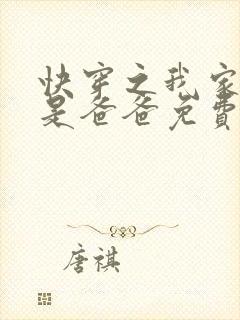 快穿之我家
是爸爸免費
唐祺